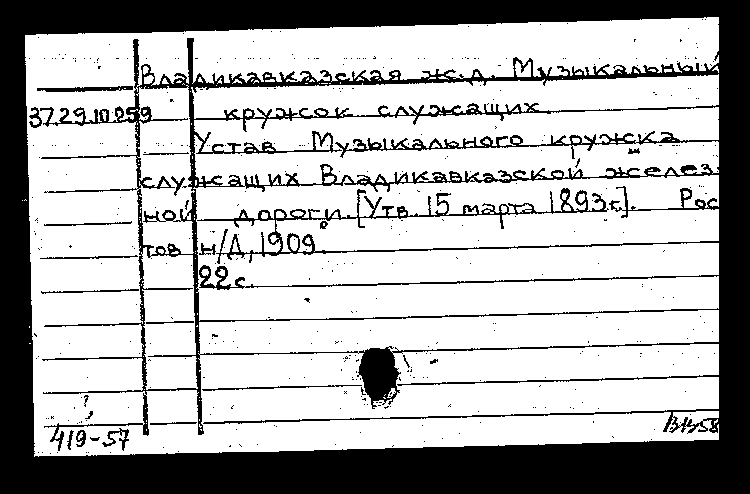 Владикавказская ж.д. Музыкальный
37.29.10259 кружок служащих.
Устав Музыкального кружка
служащих Владикавказской желез
ной дороги. [Утв. 15 марта 1893г.]. Рос
тов н/Д, 1909.
22 с.
419-57